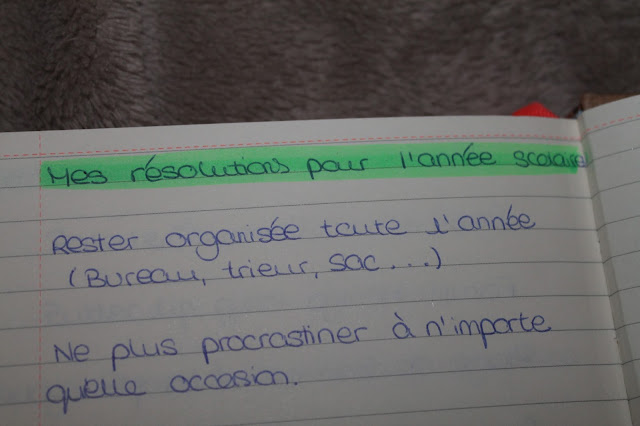 Mes résolutions pour l'année scolaire
Rester organisée toute l'année
(Bureau, trieur, sac...)
Ne plus procrastiner à n'importe
quelle occasion.